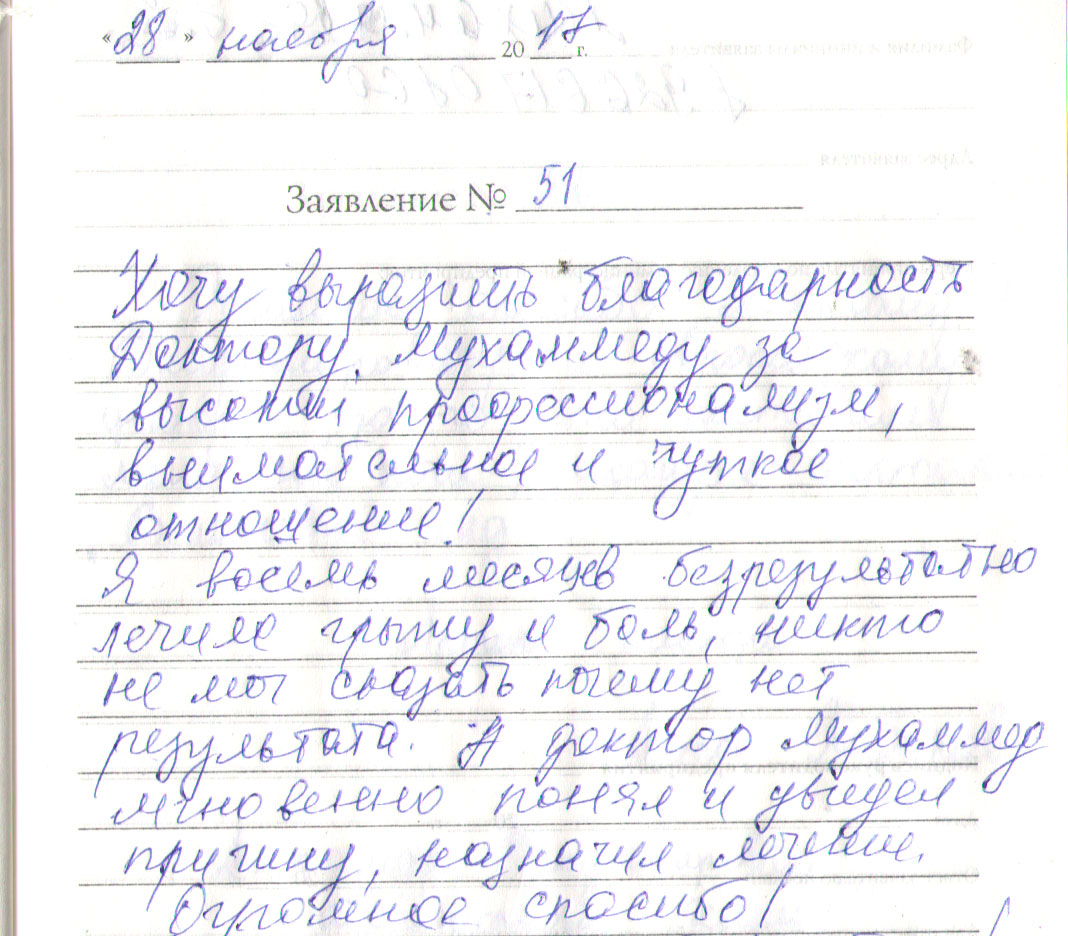 «28» ноября 2017 г.
Заявление № 51
Хочу выразить благодарность
Доктору Мухаммеду за
высокий профессионализм,
внимательное и чуткое
отношение!
Я восемь месяцев безрезультатно
лечила грыжу и боль, никто
не мог сказать почему нет
результата. А доктор Мухаммед
мгновенно понял и увидел
причину, назначил лечение.
Огромное спасибо!